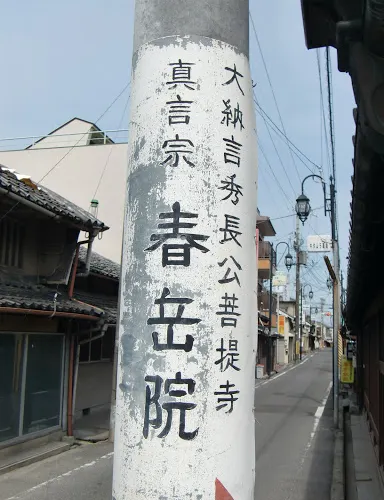 大納言秀長公菩提寺
真言宗
春岳院